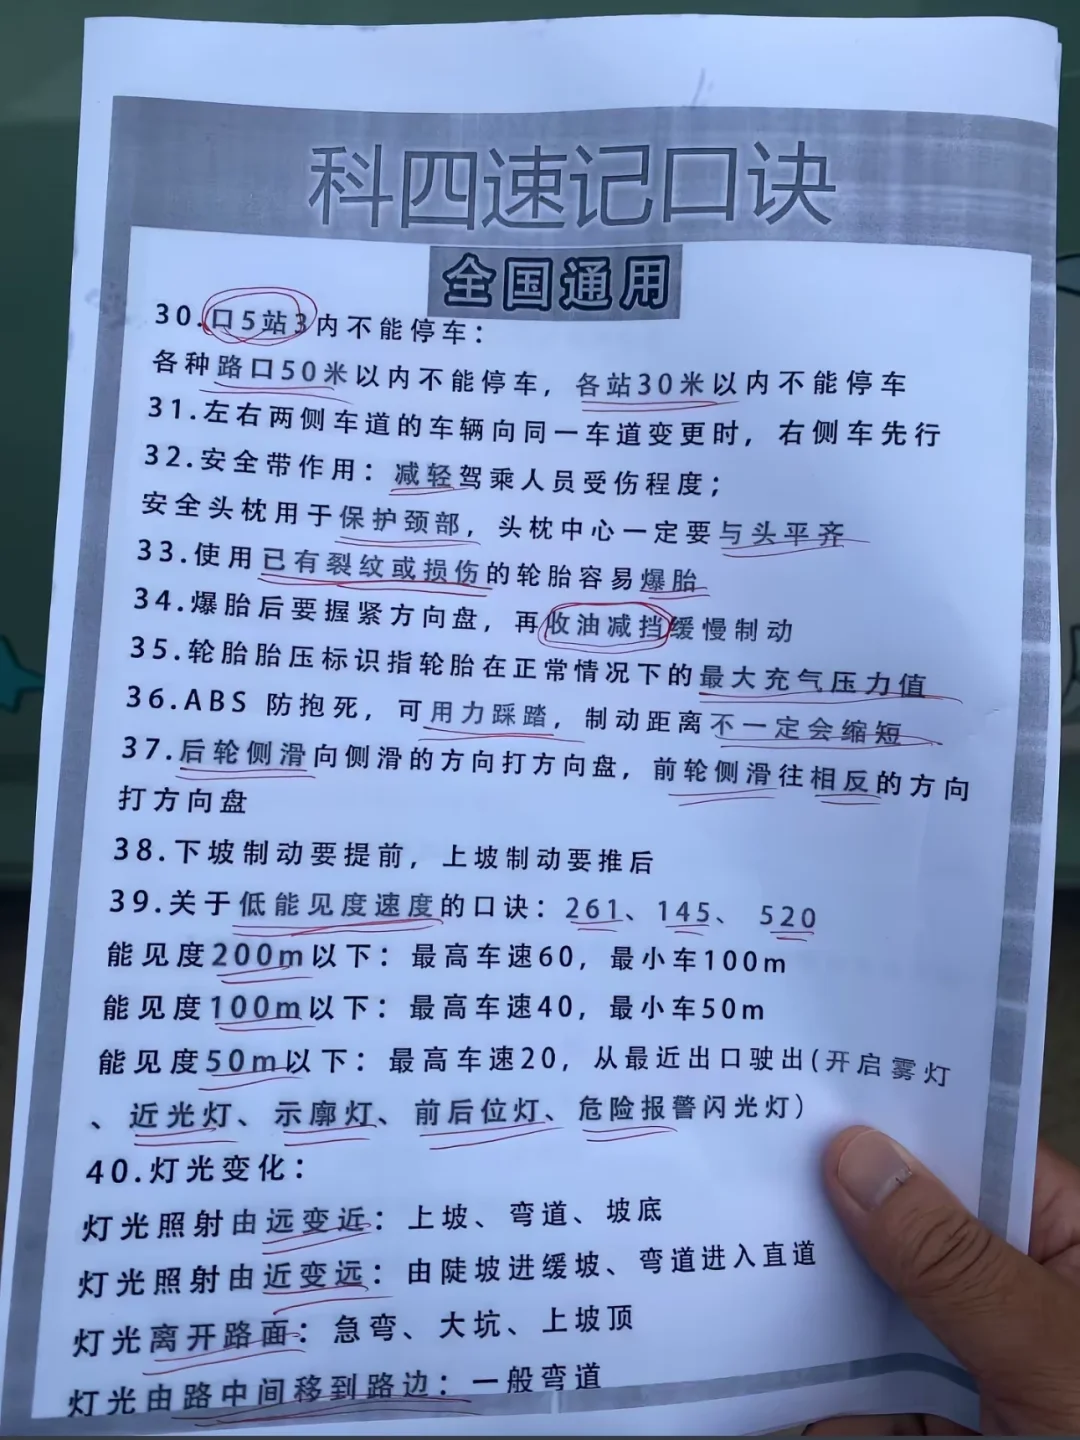 科四速记口诀
全国通用
30.口5站3内不能停车：
各种路口50米以内不能停车，各站30米以内不能停车
31.左右两侧车道的车辆向同一车道变更时，右侧车先行
32.安全带作用：减轻驾乘人员受伤程度；
安全头枕用于保护颈部，头枕中心一定要与头平齐
33.使用已有裂纹或损伤的轮胎容易爆胎
34.爆胎后要握紧方向盘，再收油减挡缓慢制动
35.轮胎胎压标识指轮胎在正常情况下的最大充气压力值
36.ABS 防抱死，可用力踩踏，制动距离不一定会缩短
37.后轮侧滑向侧滑的方向打方向盘，前轮侧滑往相反的方向
打方向盘
38.下坡制动要提前，上坡制动要推后
39.关于低能见度速度的口诀：261、145、 520
能见度200m以下：最高车速60，最小车100m
能见度100m以下：最高车速40，最小车50m
能见度50m以下：最高车速20，从最近出口驶出(开启雾灯
、近光灯、示廓灯、前后位灯、危险报警闪光灯)
40.灯光变化：
灯光照射由远变近：上坡、弯道、坡底
灯光照射由近变远：由陡坡进缓坡、弯道进入直道
灯光离开路面：急弯、大坑、上坡顶
灯光由路中间移到路边：一般弯道